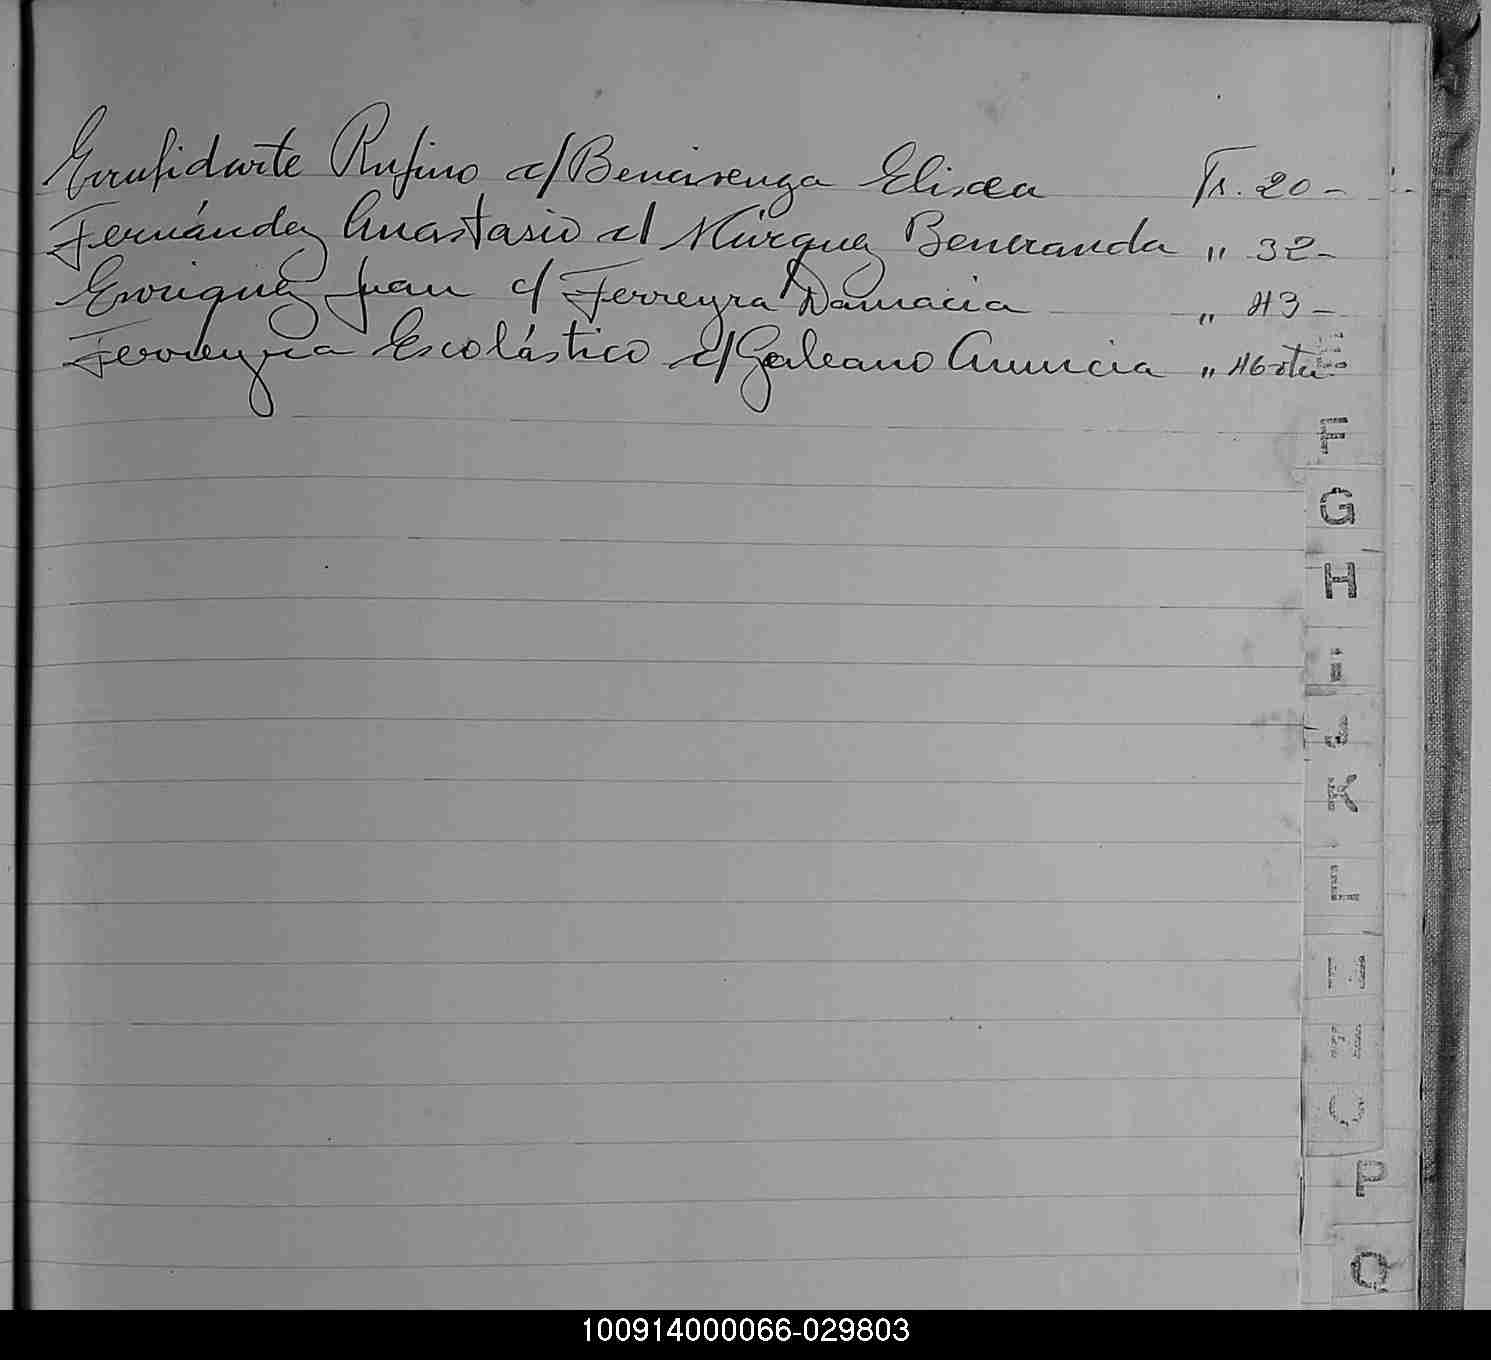 Rufino c/ Elisea Fs. 20-
Fernández Anastasio c/ Márquez Beneranda " 32-
Enriquez Juan c/ Ferreyra Damacia " 43-
Ferreyra Escolástico c/ Galeano Anuncia " 46 vta
F
G
H
I
J
K
L
M
N
O
P
Q
100914000066-029803